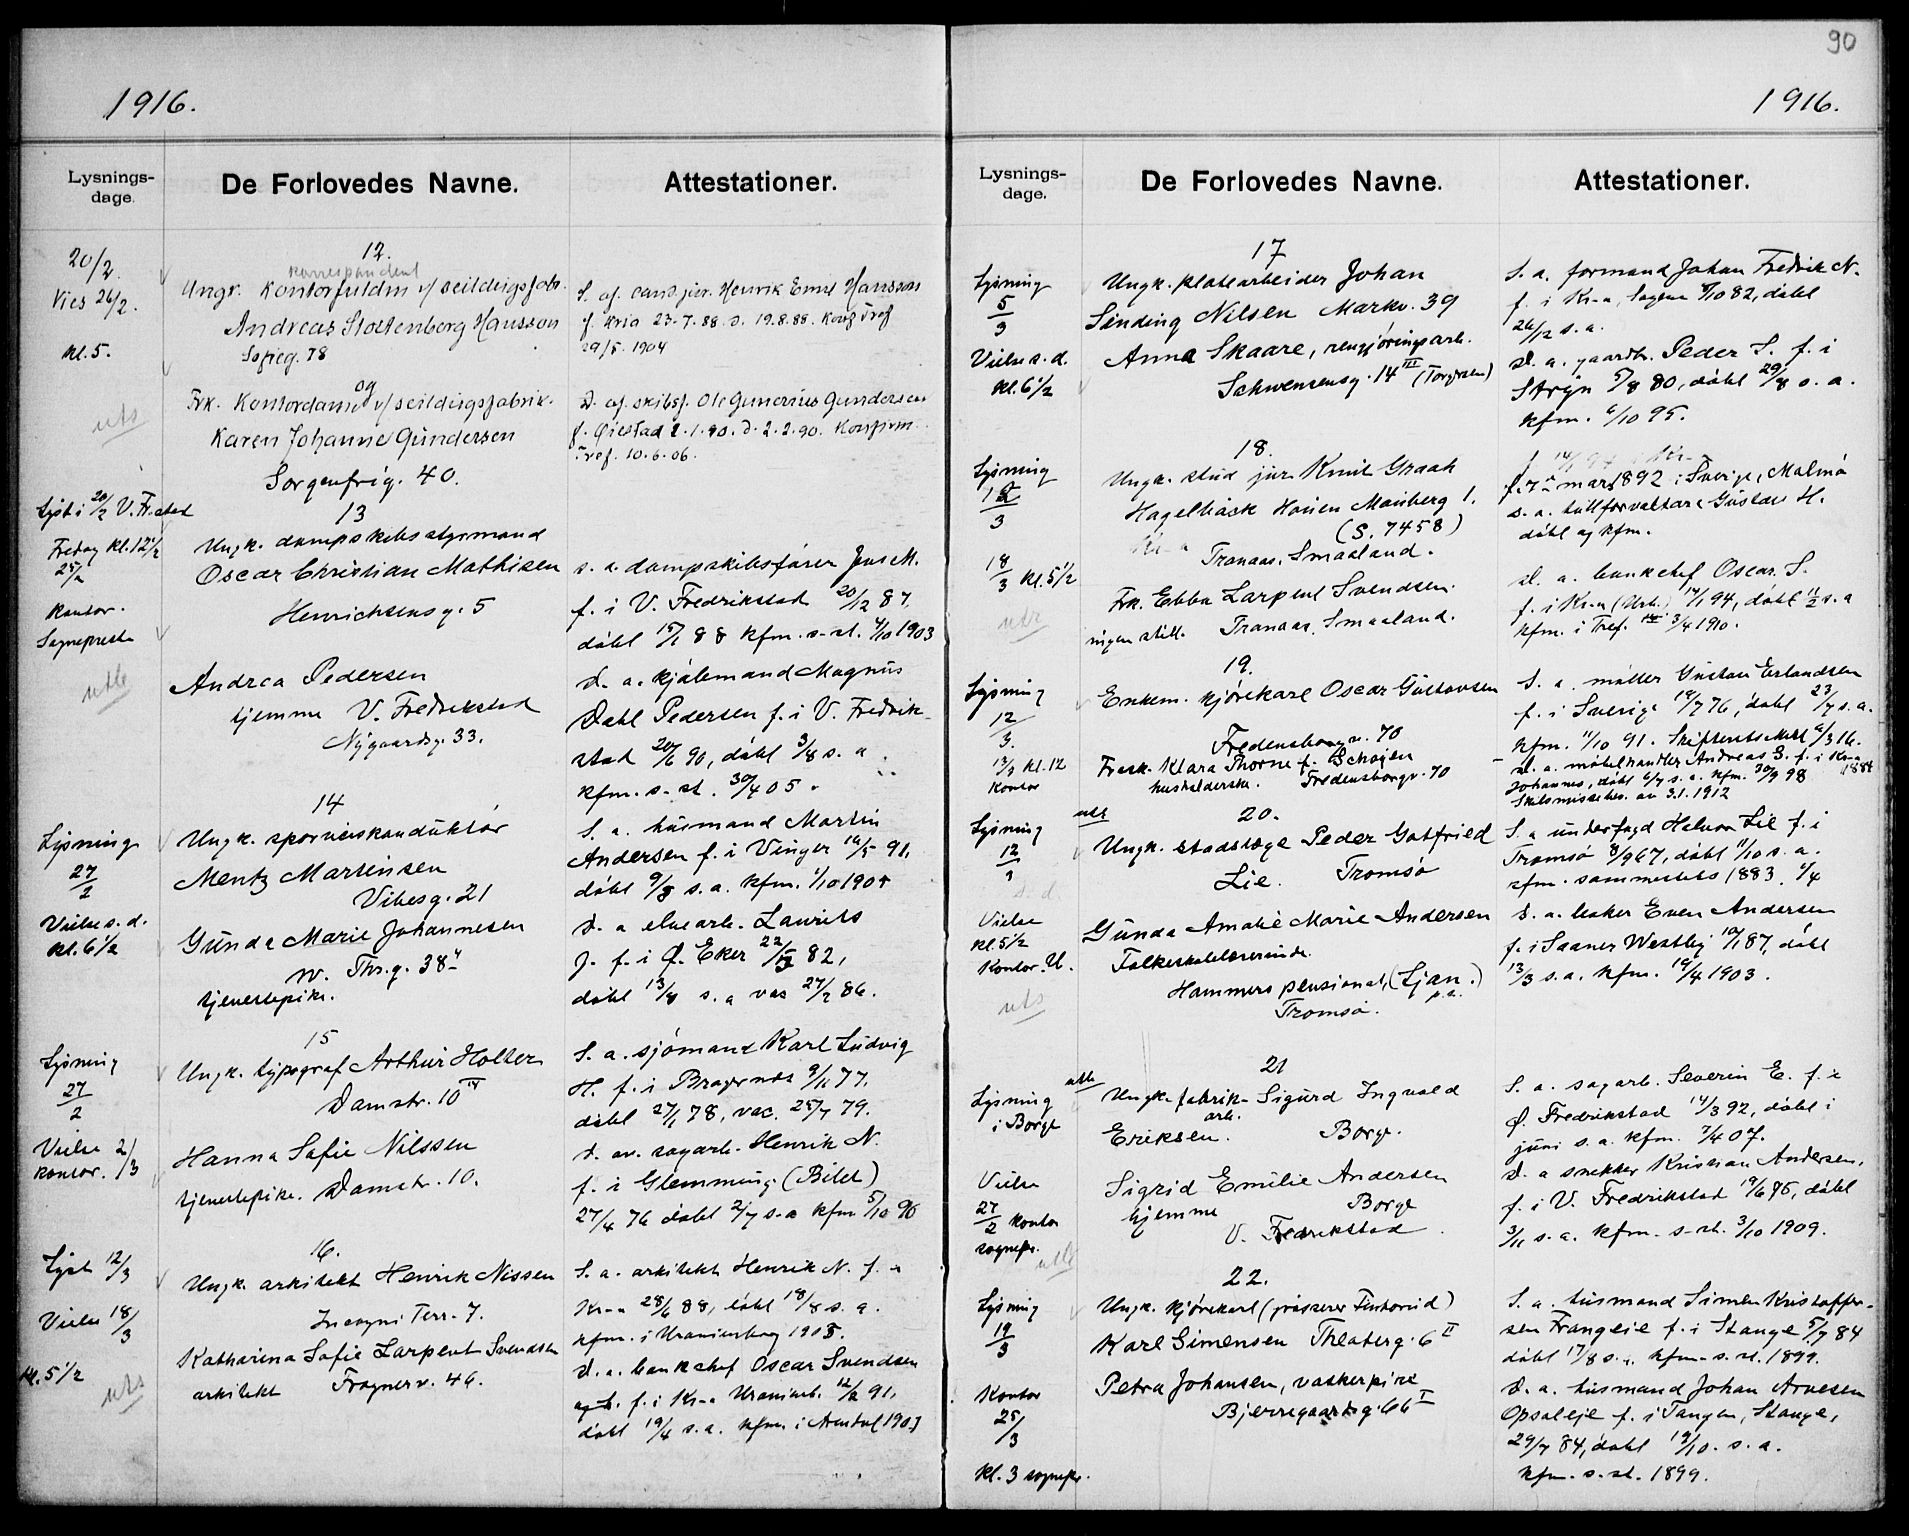 90
1916.
Lysnings-
dage.
De Forlovedes Navne.
Attestationer.
20/2.
Vies 26/2.
kl. 5.
uts
12.
korrespondent
Ungk. Kontorfuldm v/ seildugsfabr.
Andreas Stoltenberg Hansson
Sofieg. 78
og
Frk. Kontordame v/ seildugsfabrik.
Karen Johanne Gundersen
Sorgenfrig. 40.
S. af cand. jur. Henrik Emil Hansson
f. Kria 23-7.88. d. 19.8.88. Konf Tref
29/5. 1904
D. af skibsf. Ole Gunerius Gundersen
f. Øiestad 2.1.90. d. 2.2.90. Konfirm.
Tref. 10.6.06.
Lyst i 20/2 V. Fr.stad
Fredag kl. 12 1/2
25/2
Kontor.
Sogneprest
utb
13
Ungk. dampskibsstyrmand
Oscar Christian Mathisen
Henrichsensg. 5
Andrea Pedersen
hjemme V. Fredrikstad
Nygaardsg. 33.
s. a. dampskibsfører Jens M.
f. i V. Fredrikstad 20/12 87,
døbt 15/1 88 kfm. s. st. 4/10 1903
d. a. kjøbmand Magnus
Dahl Pedersen f. i V. Fredrik-
stad 20/6 90, døbt 3/8 s. a
kfm. s. st. 30/4 05.
Lysning
27/2
Vielse s. d.
kl. 6 1/2
14
Ungk. sporveiskonduktør
Mentz Martinsen
Vibesg. 21
Gunda Marie Johannesen
W. Thr.g. 38
tjenestepike.
S. a. husmand Martin
Andersen f. i Vinger 16/5 91,
døbt 9/8 s. a. kfm.
D. a elvearb. Laurits
J. f. i Ø. Eker 82,
døbt 13/8 s. a vac 27/2 86.
Lysning
27/2
Vielse 2/3
kontor.
15
Ungk. typograf Arthur Holter
Damstr. 10
Hanna Sofie Nilssen
tjenestepike. Damstr. 10.
S. a. sjømand Karl Ludvig
H. f. i Bragernes 9/11 77,
døbt 27/1 78, vac. 25/7 79.
d. av. sagarb. Henrik N.
f. i Glemminge (Bilet)
27/4 76 døbt 2/7 s. a kfm 5/10 90
Lyst 12/3
Vielse 18/3
kl. 5 1/2
uts
16.
Ungk. arkitekt Henrik Nissen
Incogni Terr. 7.
Katharina Sofie Larpent Svendsen
arkitekt Frognerv. 46.
S. a. arkitekt Henrik N. f. i
Kr-a 28/6 88, døbt 18/8 s. a.
kfm. i Uranienborg 1903.
D. a. bankchef Oscar Svendsen
f. i Kr-a Uranienb. 91,
døbt 19/4 s. a. kfm. i Arendal 1907
1916.
Lysnings-
dage.
De Forlovedes Navne.
Attestationer.
Lysning
5/3
Vielse s. d.
kl. 6 1/2
17
Ungk. platearbeider Johan
Sinding Nilsen Markv. 39
Anna Skaare, rengjøringsarb.
Schwensensg. 14 III (Torgersen)
S. a. formand Johan Fredrik N.
f. i Kr-a, Sagene 10 82, døbt
26/12 s. a.
D. a. gaardbr. Peder S. f. i
Stryn 5/8 80, døbt 29/8 s. a.
kfm. 6/10 95.
Lysning
3
18/3 kl. 5 1/2
18.
Ungk. stud jur Knut Graah
Hagelbäck Hansen Maiberg 1.
(S. 7458)
Tranaas, Smaaland.
Frk. Ebba Larpent Svendsen.
ingen still. Tranaas, Smaaland.
mars 1892 i Sverige, Malmø
s. a. tullforvaltare Gustav H.
døbt og kfm.
D. a. bankchef Oscar S.
f. i Kr-a (Urb.) 14/1 94, døbt 11/2 s. a
kfm. i Tref. 3/4 1910.
Lysning
12/3.
13/3 kl. 12
Kontor
19.
Enkem. kjørekarl Oscar Gustavsen
Fredensborgv. 70
Frask. Klara Thorne f. Schøien
husholderske. Fredensborgv. 70
S. a. møller Gustav Erlandsen
f. i Sverige 76, døbt 23/7 s. a.
kfm. 11/10 91. Skifteattest 6/3 16.
D. a. møbelhandler Andreas S. f. i Kr-a 1884
Johannes, døbt 6/7 s. a. kfm. 30/9 98
Skilsmissebev. av 3.1.1912
Lysning
12/3
s. d.
Vielse
kl. 5 1/2
Kontor. U.
uts
20.
Ungk. stadslæge Peder Gotfried
Lie. Tromsø
Gunda Amalie Marie Andersen
Folkeskolelærerinde.
Hammers pensionat, (Ljan.)
p.t.
Tromsø.
S. a underfogd Halvor Lie f. i
Tromsø 8/9 67, døbt 11/10 s. a.
kfm. sammesteds 1883.
D. a. baker Even Andersen
f. i Saaner Westby 87, døbt
13/3 s. a. kfm. 19/4 1903.
Lysning
i Borge
Vielse
27/2 kontor
sognepr.
utb
21
Ungk. fabrik- Sigurd Ingvald
arb.
Eriksen. Borge.
Sigrid Emilie Andersen
hjemme Borge
V. Fredrikstad
S. a. sagarb. Severin E. f. i
Ø. Fredrikstad 14/3 92, døbt i
juni s. a. kfm. 7/4 07.
D. a snekker Kristian Andersen,
f. i V. Fredrikstad 19/6 95, døbt
3/11 s. a. kfm. s. st. 3/10 1909.
Lysning
19/3
Kontor
25/3
kl. 3 sognepr.
22.
Ungk. kjørekarl
Karl Simensen Theaterg. 6 II
Petra Johansen, vaskerpike
Bjerregaardsg. 66 I
S. a. husmand Simen Kristoffer-
sen Frangeie f. i Stange 5/7 84
døbt 17/8 s. a. kfm. s. st. 1899.
D. a. husmand Johan Arvesen
Opsaleje f. i Tangen, Stange,
29/7 84, døbt 19/10. s. a.
kfm. s. st. 1899.